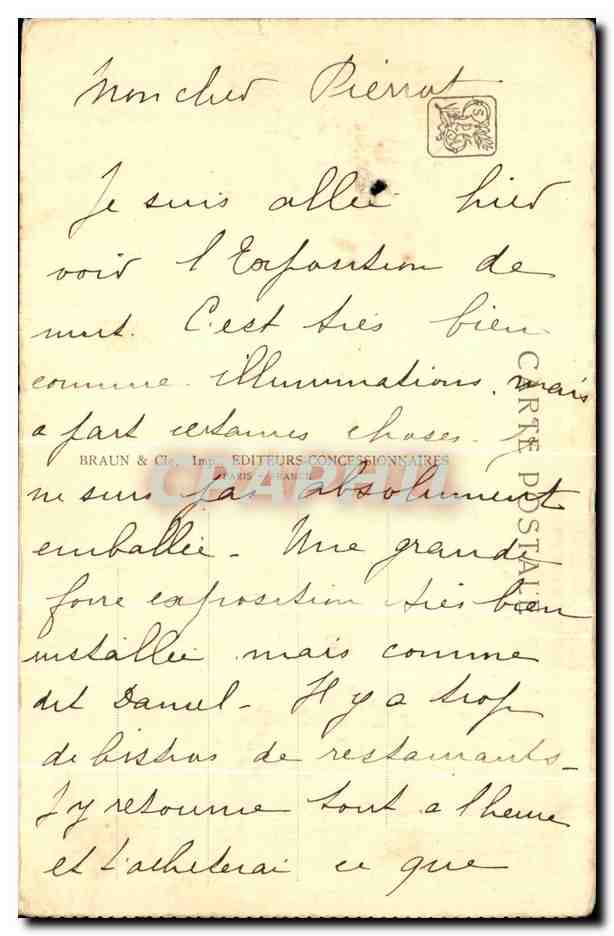 Mon cher Pierrot
Je suis allée hier
voir l'Exposition de
nuit. C'est très bien
comme illuminations, mais
a part certaines choses. Je
BRAUN & Cie, Imp., EDITEURS-CONCESSIONNAIRES
PARIS - FRANCE
CARTE POSTALE
CPAPHIL
ne suis pas absolument
emballée - Une grande
foire exposition très bien
installée mais comme
dit Daniel - Il y a trop
de bistros de restaurants -
J'y retourne tout a l'heure
et t'achèterai ce que